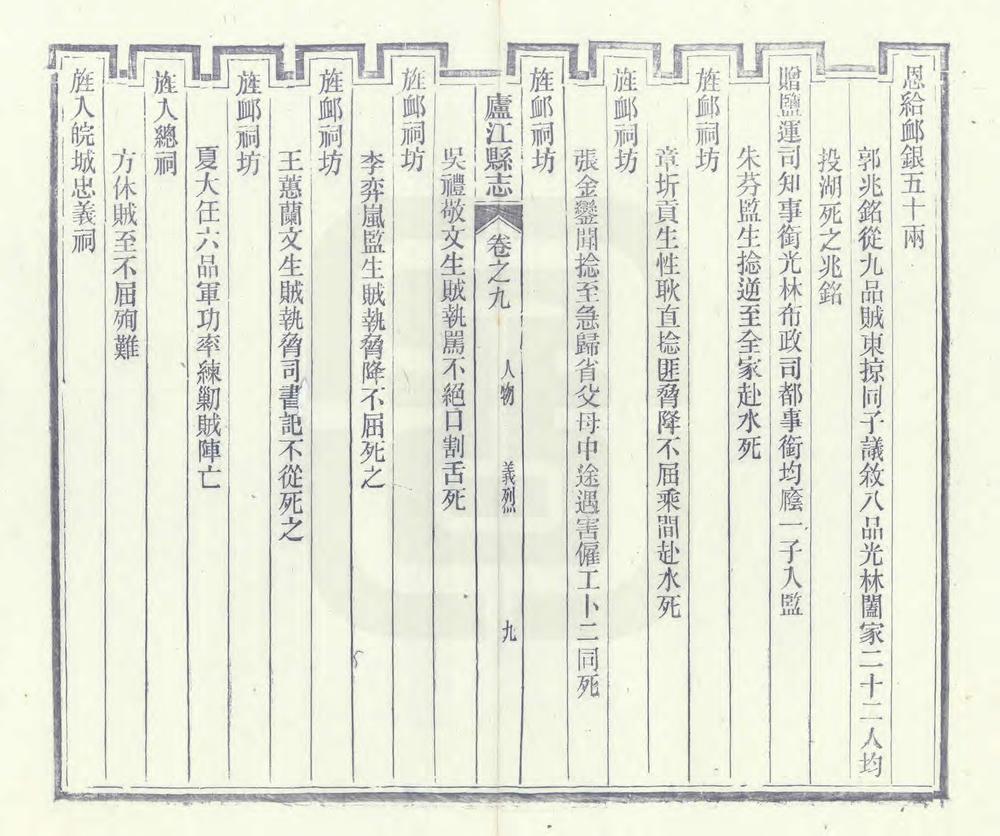 恩給䘏銀五十兩
郭兆銘從九品賊東掠同子議敘八品光林闔家二十二人均
投湖死之兆銘
贈鹽運司知事銜光林布政司都事銜均廕一子入監
朱芬監生捻逆至全家赴水死
旌䘏祠坊
章圻貢生性耿直捻匪脅降不屈乘間赴水死
旌䘏祠坊
張金鑾聞捻至急歸省父母中途遇害僱工卜二同死
旌䘏祠坊
廬江縣志 卷之九 人物 義烈 九
吳禮敬文生賊執罵不絕口割舌死
旌䘏祠坊
李弈嵐監生賊執脅降不屈死之
旌䘏祠坊
王蕙蘭文生賊執脅司書記不從死之
旌䘏祠坊
夏大任六品軍功率練勦賊陣亡
旌入總祠
方休賊至不屈殉難
旌入皖城忠義祠